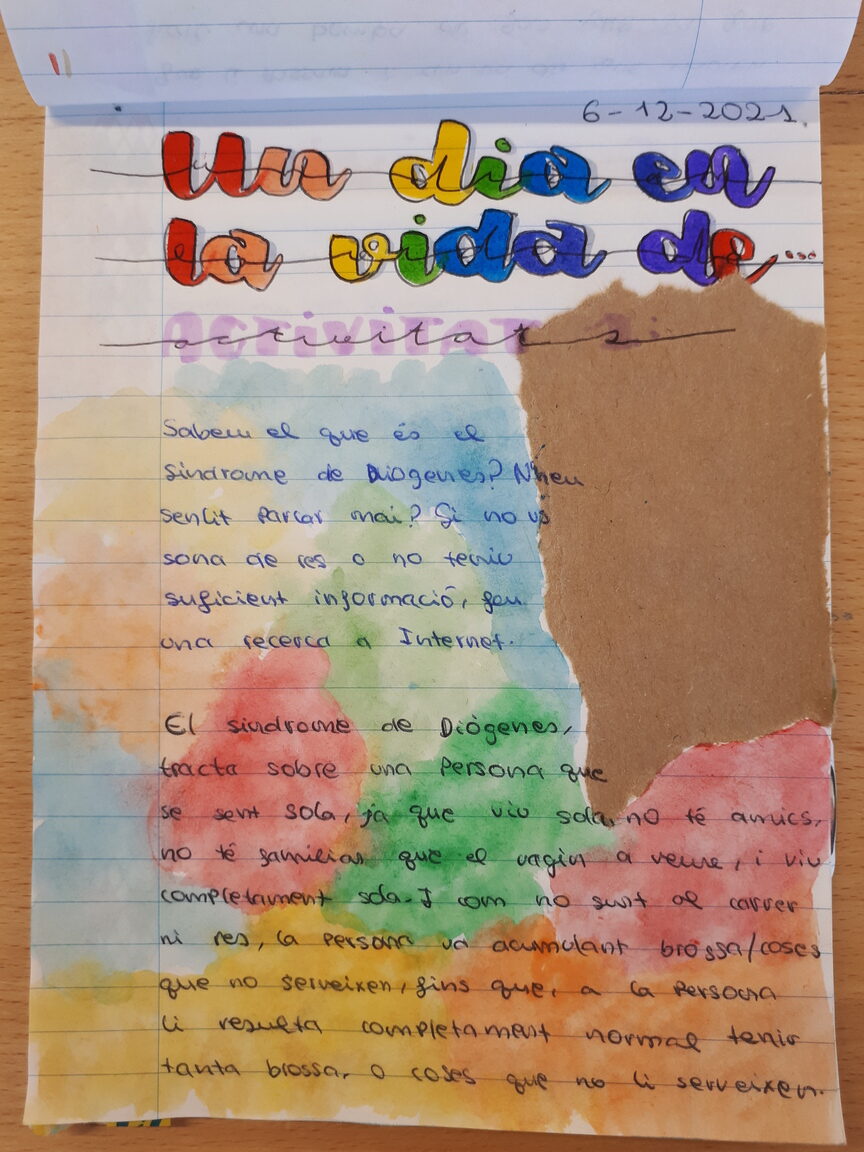 6-12-2021.
Un dia en
la vida de...
activitat 2:
Sabeu el que és el
síndrome de Diògenes? N'heu
sentit parlar mai? Si no us
sona de res o no teniu
suficient informació, feu
una recerca a Internet.
El síndrome de Diògenes,
tracta sobre una persona que
se sent sola, ja que viu sola, no té amics,
no té familias que el vagin a veure, i viu
completament sola. I com no surt al carrer
ni res, la persona va acumulant brossa/coses
que no serveixen, fins que, a la persona
li resulta completament normal tenir
tanta brossa, o coses que no li serveixen.